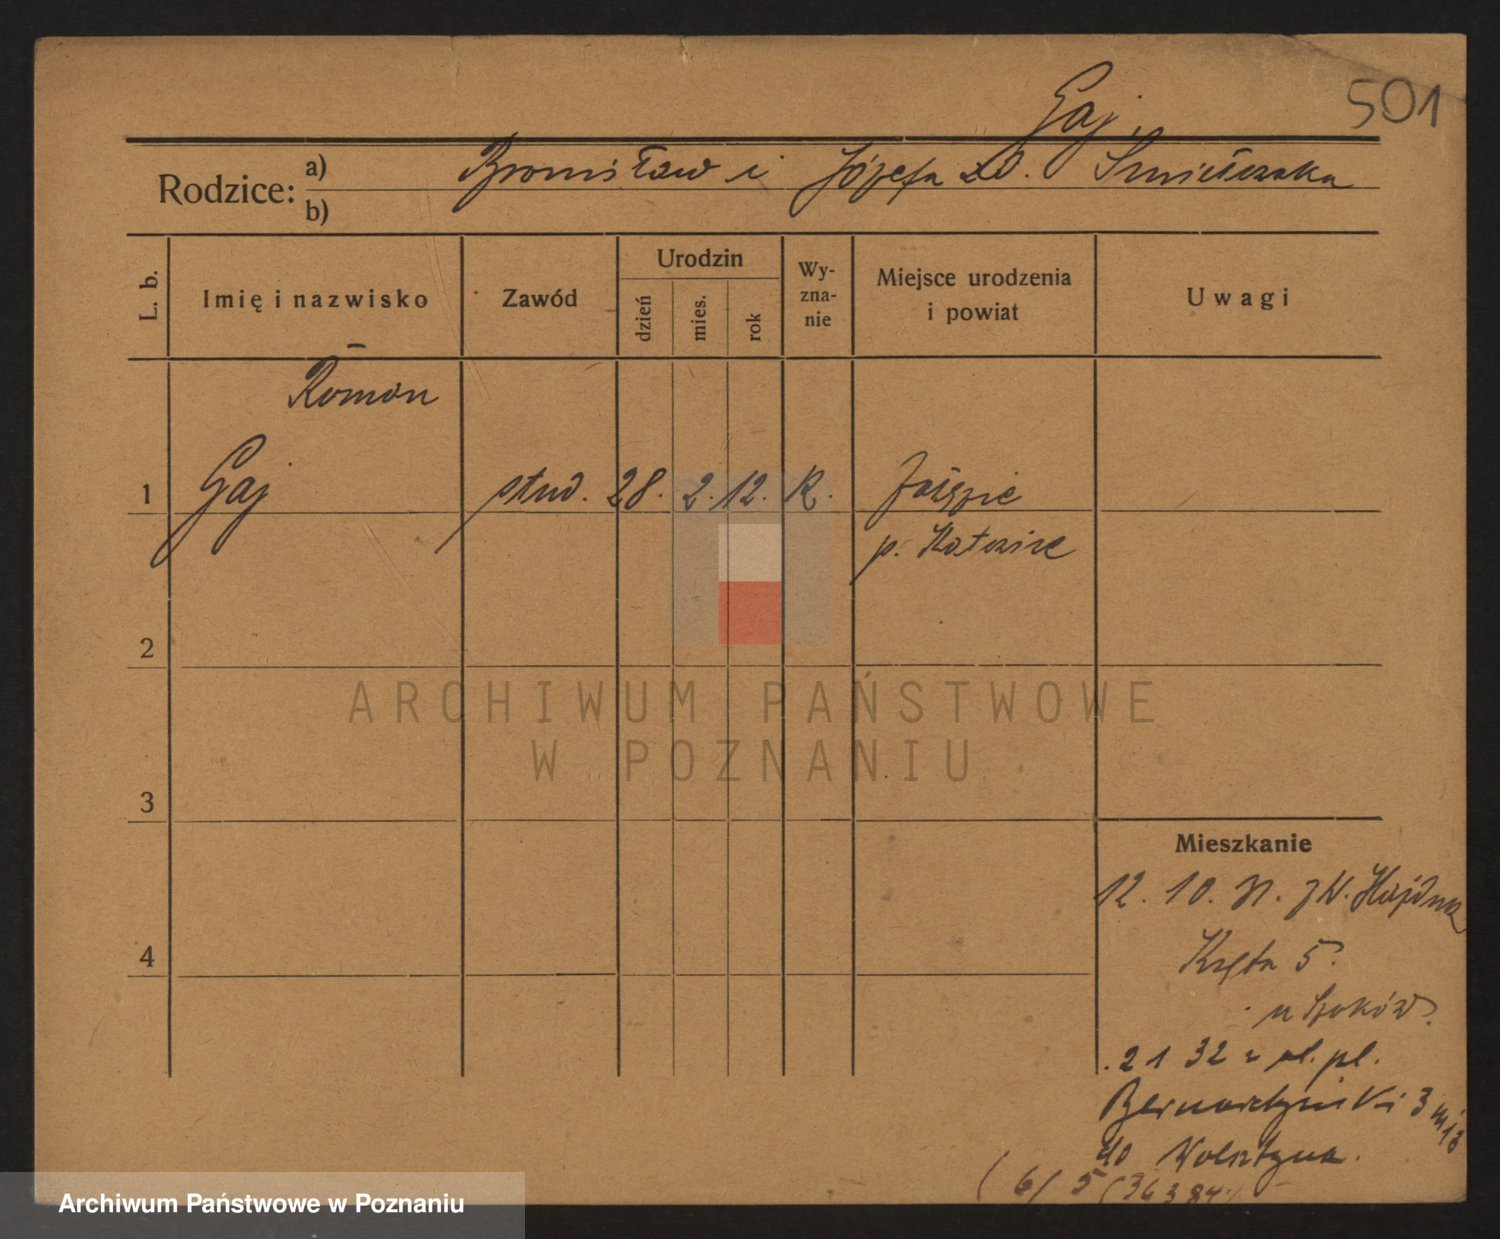 501
Gaj.
Rodzice: a) Bronisław i Józefa zd.
b)
L. b. Imię i nazwisko Zawód Urodzin dzień mies. rok Wy-zna-nie Miejsce urodzenia i powiat Uwagi
Roman
1 Gaj stud. 28. 2. 12. K.
p. Katowice
2
3
Mieszkanie
12. 10. 31. z W. Hajduk
4
Kręta 5.
u
2 1 32 z pl.
Bernardyński 3 m 13
do Wolsztyna.
ARCHIWUM PAŃSTWOWE
W POZNANIU
Archiwum Państwowe w Poznaniu